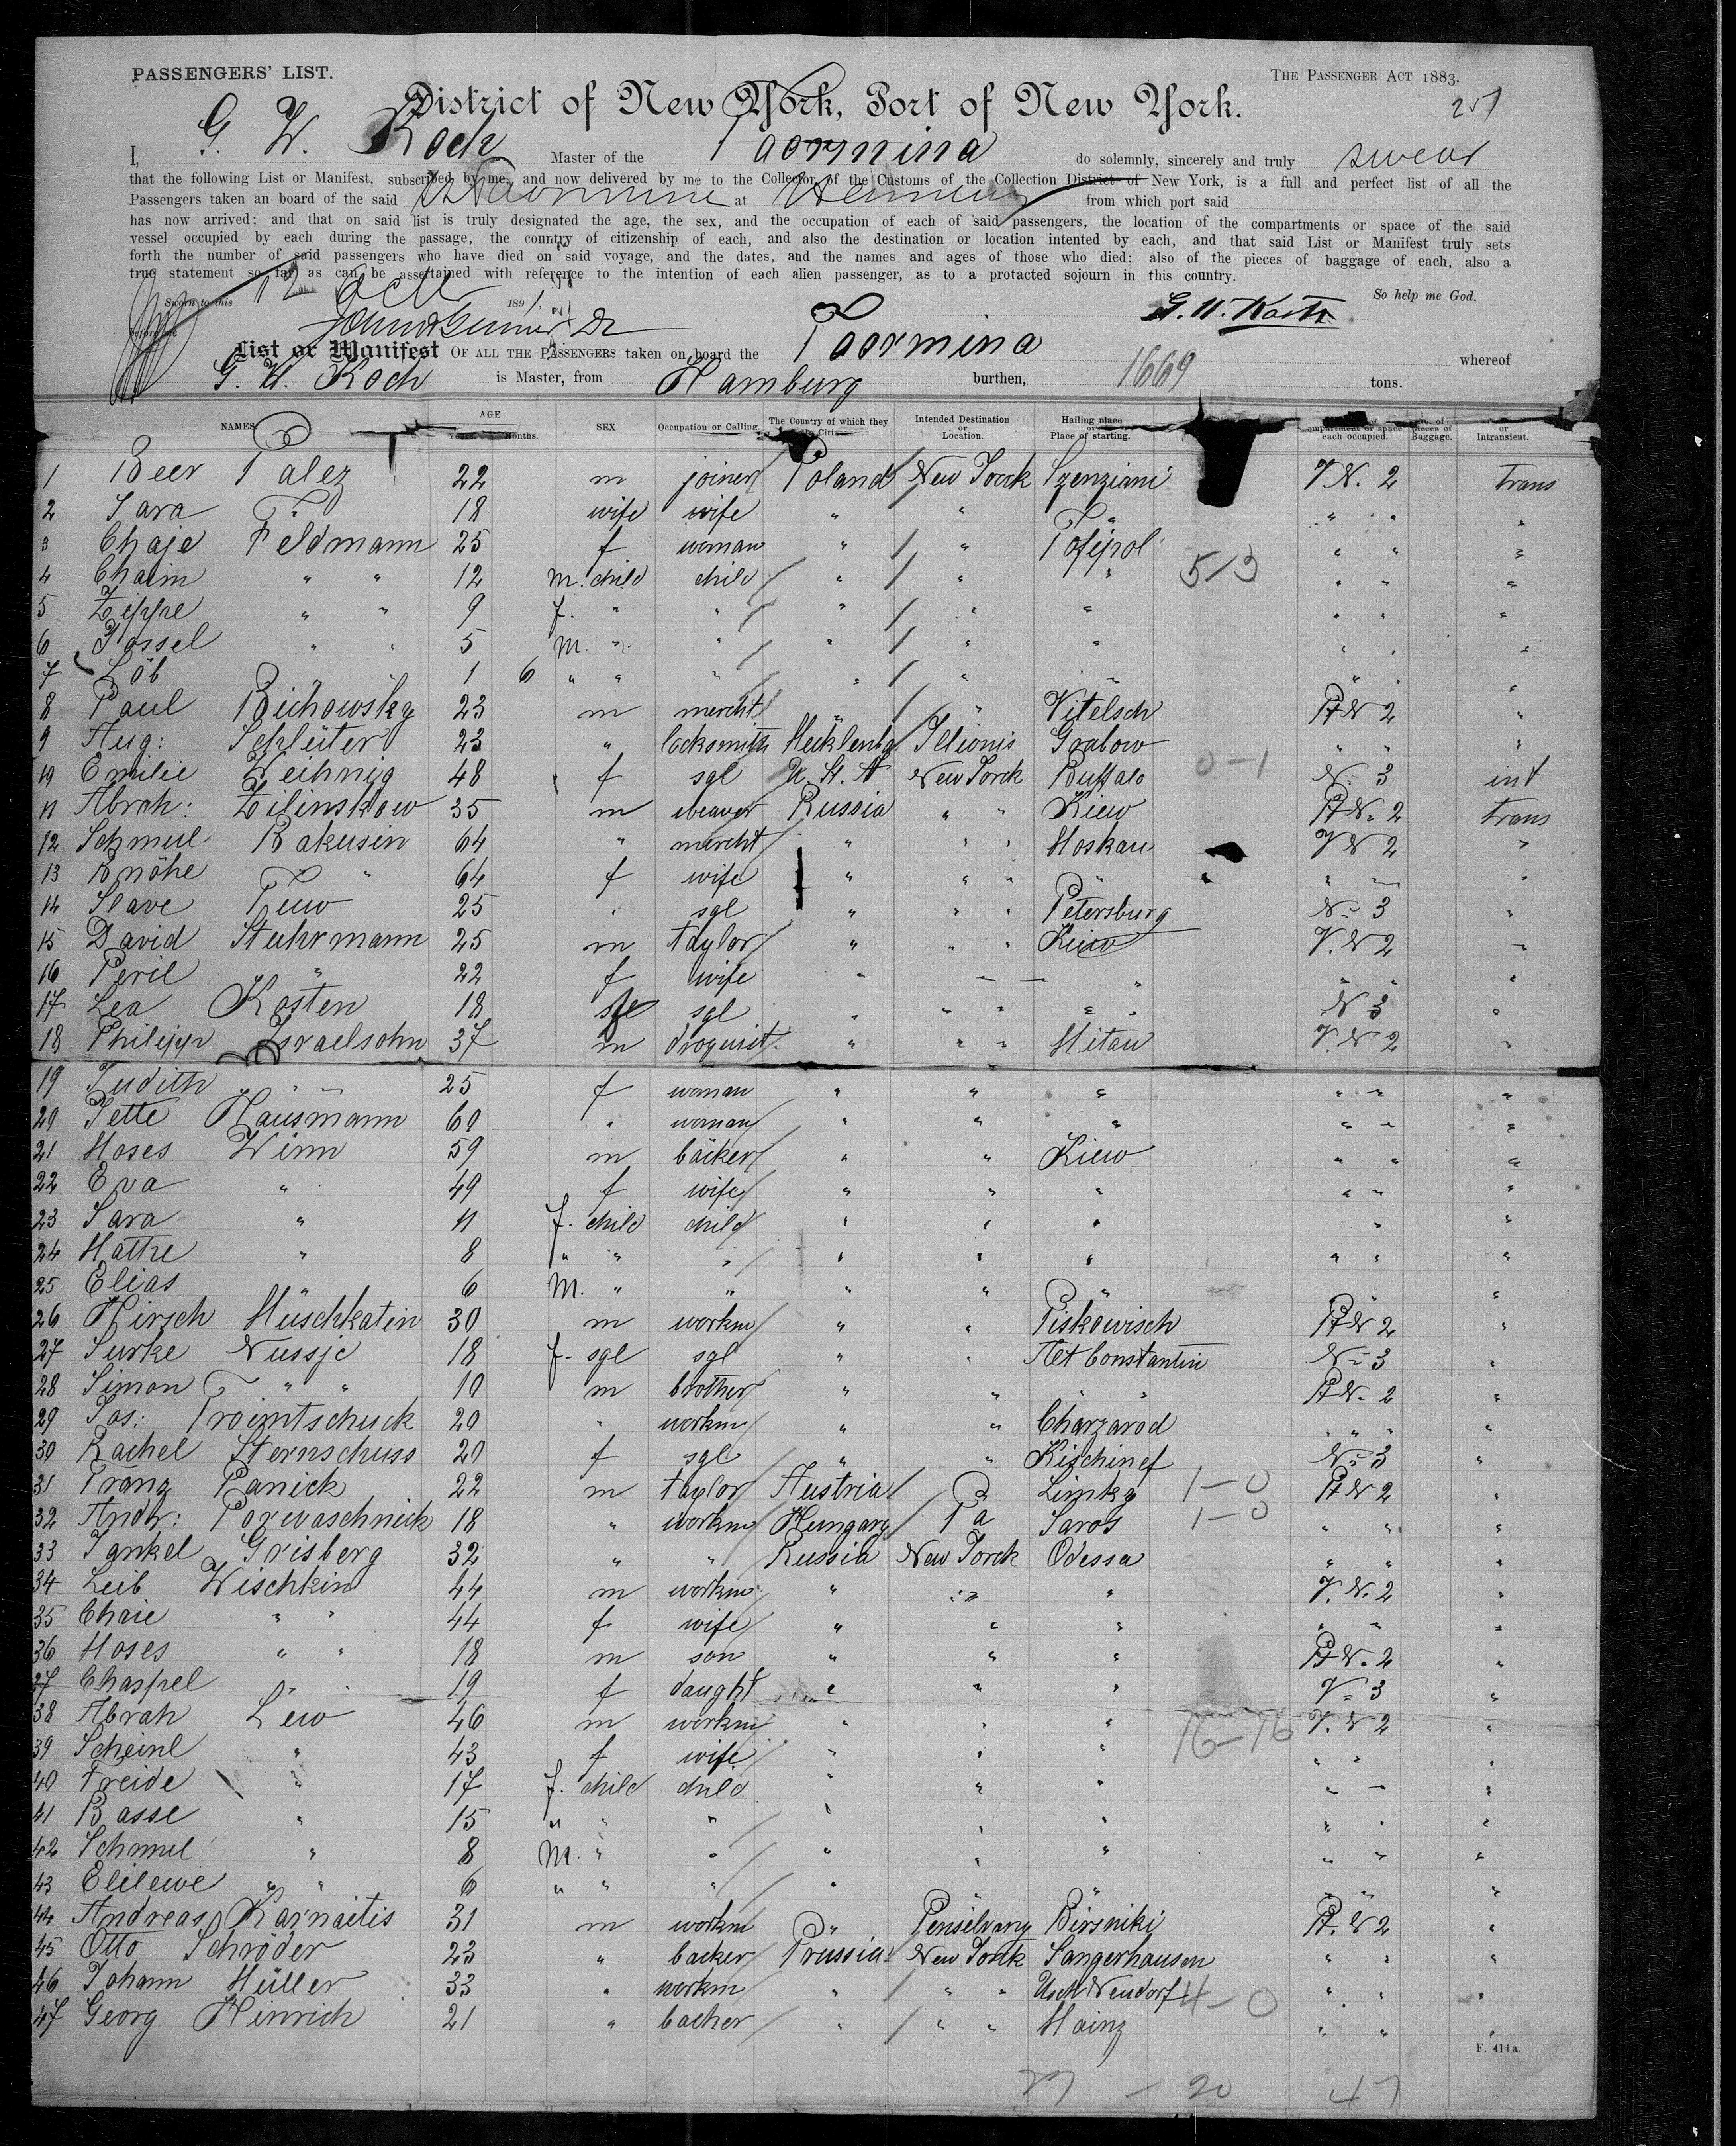 PASSENGERS' LIST.
THE PASSENGER ACT 1883.
257
District of New York, Port of New York.
I, G. W. Koch Master of the Taormina do solemnly, sincerely and truly swear
that the following List or Manifest, subscribed by me, and now delivered by me to the Collector of the Customs of the Collection District of New York, is a full and perfect list of all the
Passengers taken on board of the said Taormina at from which port said
has now arrived; and that on said list is truly designated the age, the sex, and the occupation of each of said passengers, the location of the compartments or space of the said
vessel occupied by each during the passage, the country of citizenship of each, and also the destination or location intented by each, and that said List or Manifest truly sets
forth the number of said passengers who have died on said voyage, and the dates, and the names and ages of those who died; also of the pieces of baggage of each, also a
true statement so far as can be assertained with reference to the intention of each alien passenger, as to a protacted sojourn in this country.
Sworn to this 12 Octr 1891. So help me God.
before me
List or Manifest OF ALL THE PASSENGERS taken on board the Taormina whereof
G. W. Koch is Master, from Hamburg burthen, 1669 tons.
NAMES AGE Years. Months. SEX Occupation or Calling. The Country of which they Intended Destination or Location. Hailing place or Place of starting. each occupied. pieces of Baggage. or Intransient.
1 Beer Palez 22 m joiner Poland New Yorck Szenziani V N. 2 trans
2 Sara " 18 wife wife " " " " " "
3 Chaje Feldmann 25 f woman " " Tofipol " " "
4 Chaim " " 12 m. child child " " " 5/3 " " "
5 Zippe " " 9 f. " " " " " " " "
6 Jossel " " 5 m. " " " " " " " "
7 Löb 1 6 " " " " " " " " "
8 Paul Bichowsky 23 m mercht " " Vitelsch Pt N 2 "
9 Aug: Schlüter 23 " locksmith Mecklenbg Illionis Grabow " " "
10 Emilie Weihnig 48 f sgl U. St. A New Yorck Buffalo 0-1 N= 3 int
11 Abrah: Zilinskow 35 m weaver Russia " " Kiew Pt N. 2 trans
12 Schmul Rakusin 64 " mercht " " " Moskau V N 2 "
13 Knöhe " " 64 f wife " " " " " "
14 Slave Tuw 25 " sgl " " " Petersburg N= 3 "
15 David Stuhrmann 25 m taylor " " " Kiew V. N 2 "
16 Peril " 22 f wife " " " " " "
17 Lea Kosten 18 sgl " " " " " N 3 "
18 Philipp Israelsohn 37 m droguist " " " Mitau V. N 2 "
19 Judith " " 25 f woman " " " " " "
20 Jette Hausmann 60 " woman " " " " " "
21 Moses Winn 59 m bäcker " " Kiew " " "
22 Eva " 49 f wife " " " " " "
23 Sara " 11 f. child child " " " " "
24 Mathe " 8 " " " " " " " " "
25 Elias 6 m. " " " " " " "
26 Hirsch Müschkatin 30 m workm " " Piskowisch Pt N 2 "
27 Surke Nussje 18 f- sgl sgl " " Alt Constantin N= 3 "
28 Simon " " 10 m brother " " " " Pt N. 2 "
29 Jos: Troimtschuck 20 " workm " " Charzarod " " " "
30 Rachel Sternschuss 20 f sgl " " Kischinef N= 3 "
31 Franz Panick 22 m taylor Austria Limpky 1-0 Pt N 2 "
32 Andr: Parwaschnick 18 " workm Hungary Pa Saros 1-0 " " "
33 Jankel Grisberg 32 " " Russia New Yorck Odessa " " "
34 Leib Wischkin 44 m workm " " " " V. N. 2 "
35 Chaie " " 44 f wife " " " " " "
36 Moses " " 18 m son " " " Pt N. 2 "
37 Chaspel " " 19 f daught " " " V= 3 "
38 Abrah Lew 46 m workm " " " 16-16 V. N 2 "
39 Scheinl " 43 f wife " " " " " "
40 Freide " 17 f. child child " " " " " "
41 Basse " 15 " " " " " " " " "
42 Schmul " 8 m. " " " " " " " "
43 Elilewe " " 6 " " " " " " "
44 Andreas Karnaitis 31 m workm " Penselvany Birsniki Pt. N 2 "
45 Otto Schröder 23 " backer Prussia New Yorck Sangerhausen " " "
46 Johann Müller 33 " workm " " " Usch Neudorf 4-0 " " "
47 Georg Hinrich 21 " backer " " " Mainz " " "
F. 414a.
27 - 20 47